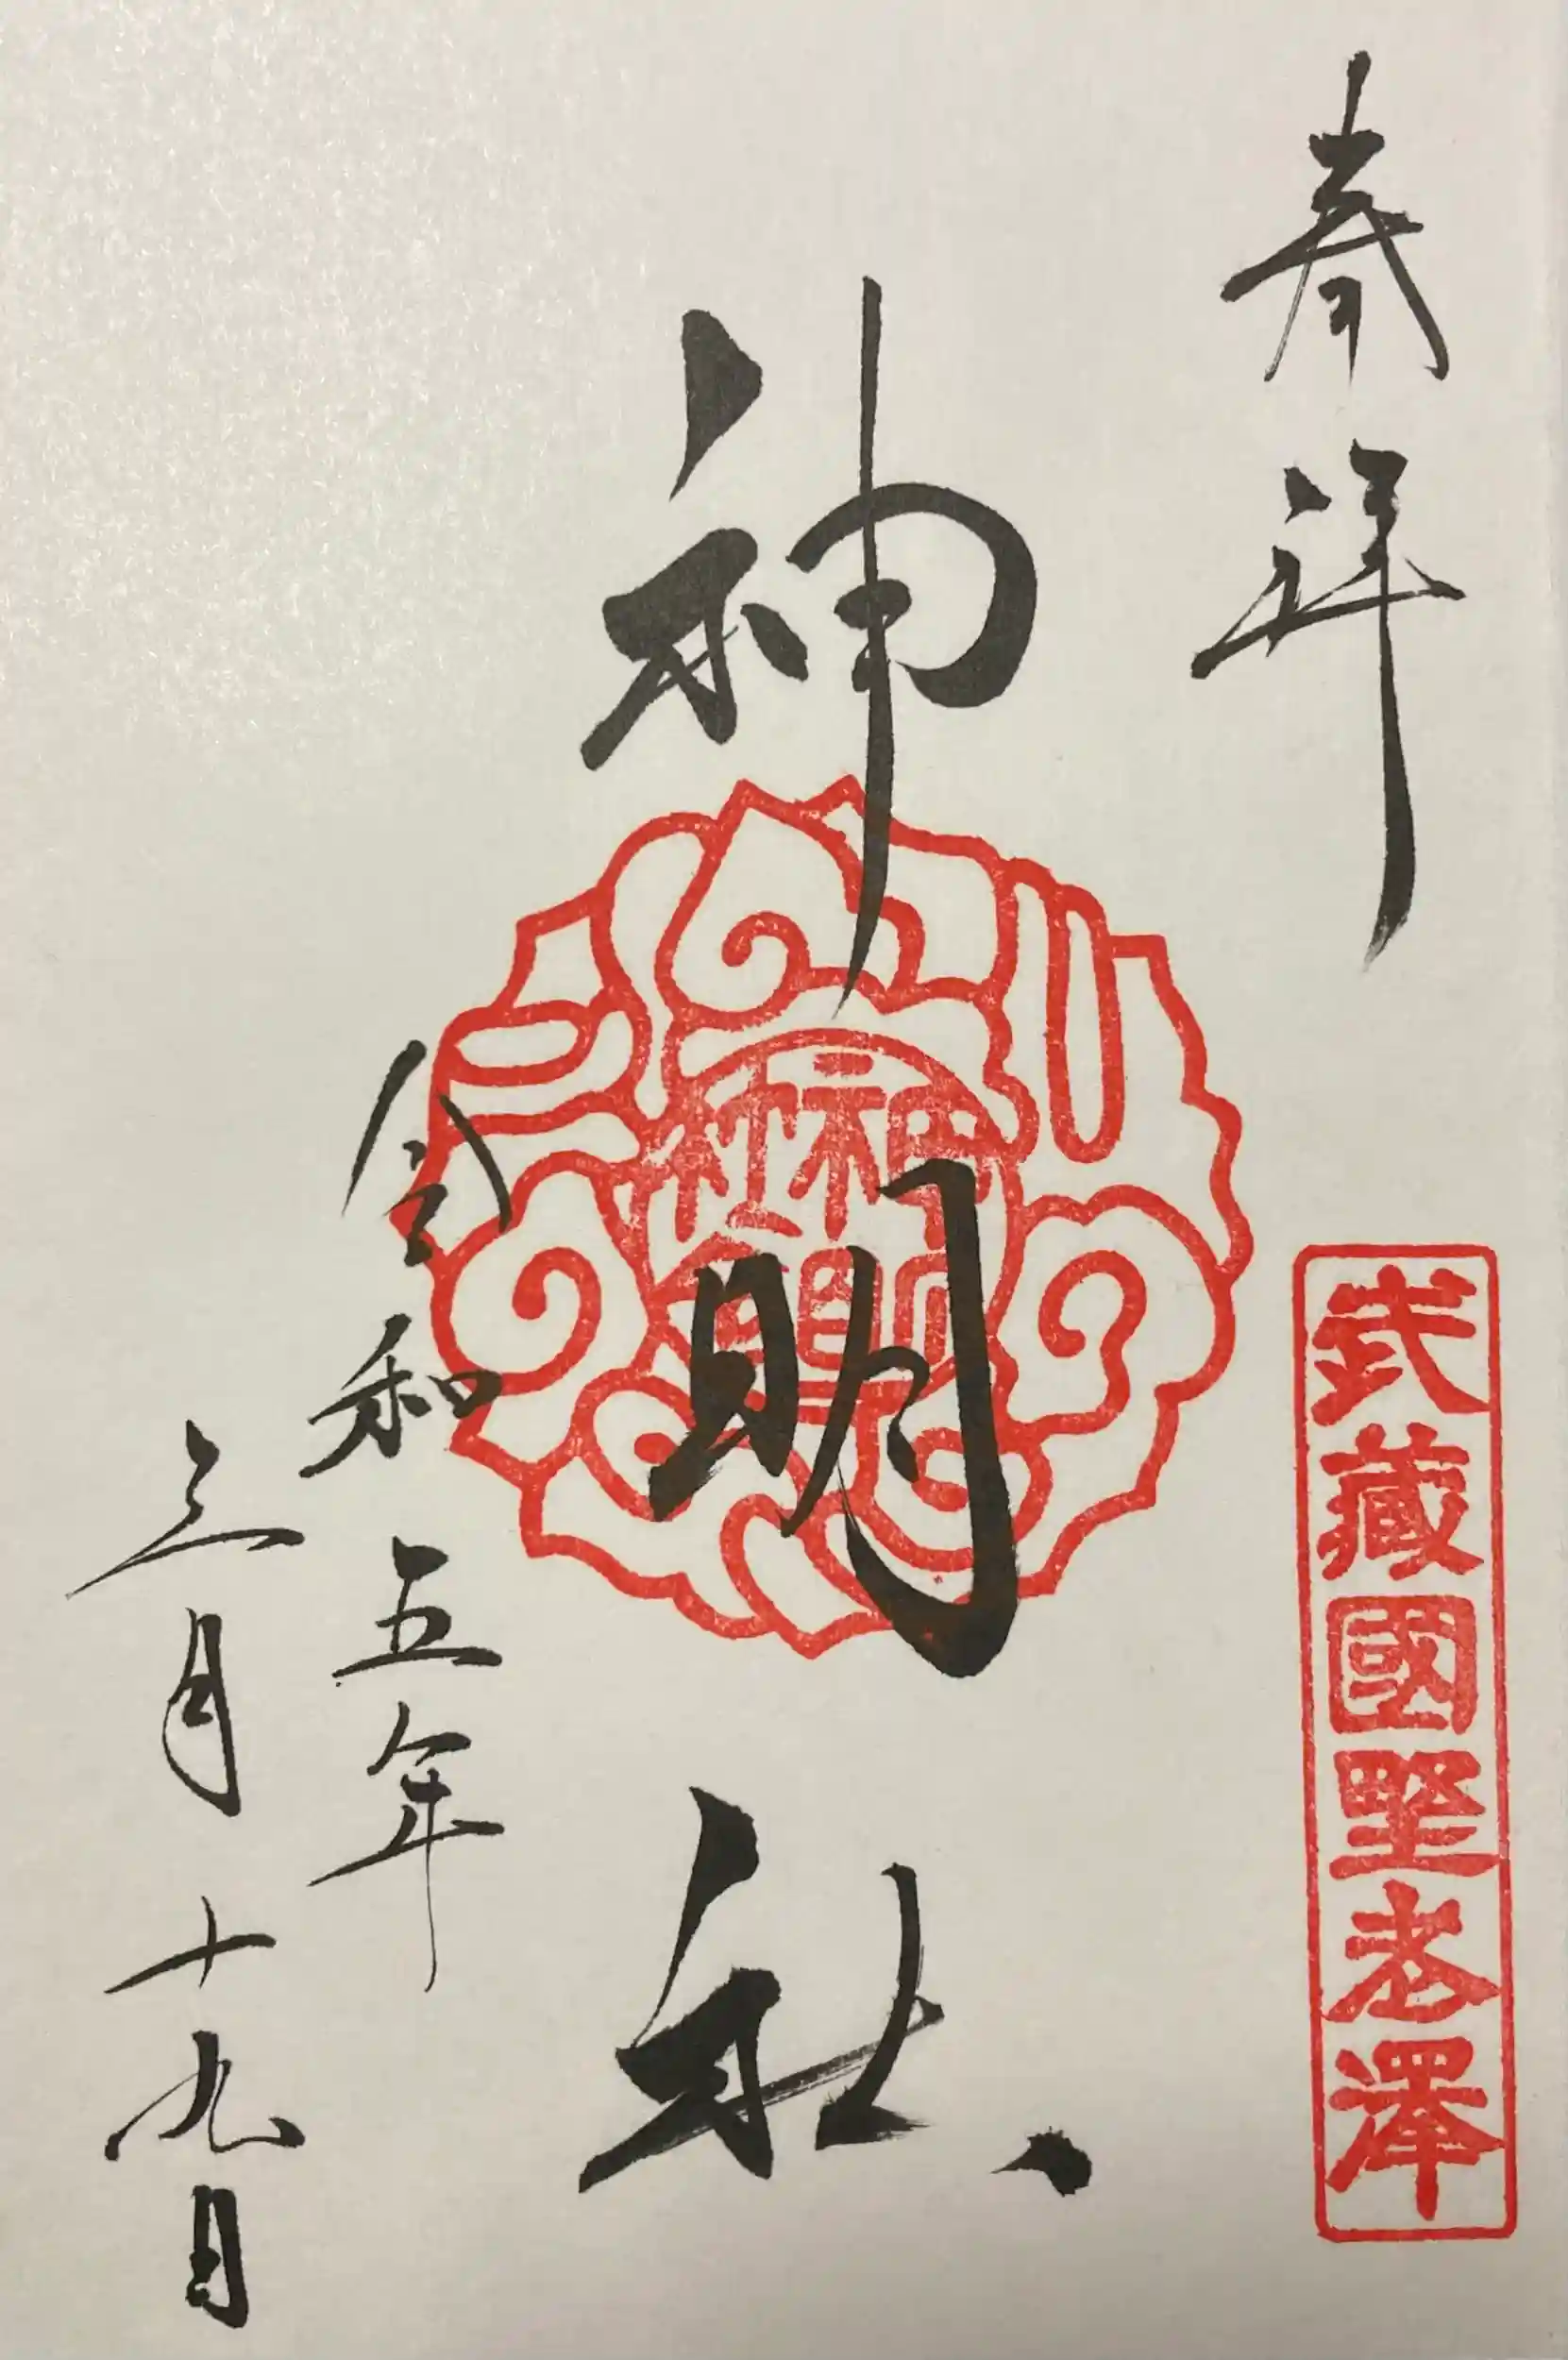 奉拝
武藏國野老澤
神明社
神社
明
令和五年
三月十九日